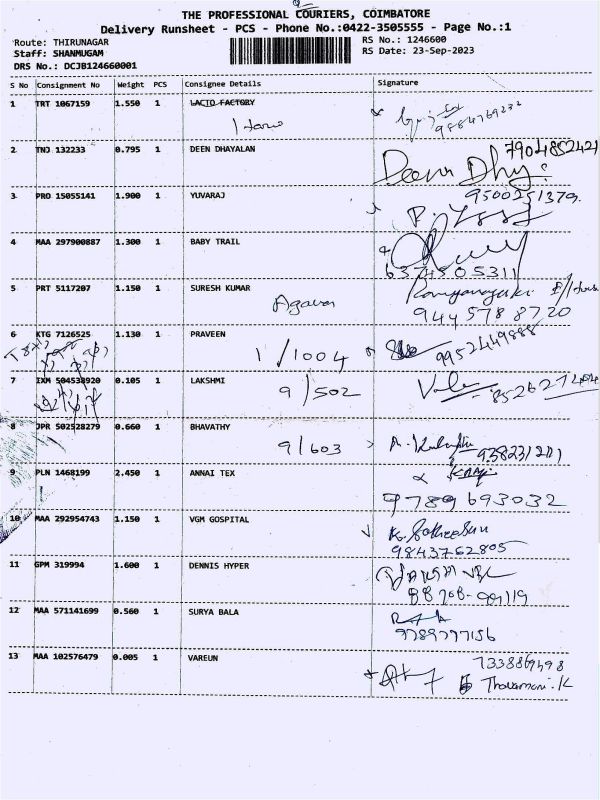 THE PROFESSIONAL COURIERS, COIMBATORE
Delivery Runsheet - PCS - Phone No.:0422-3505555 - Page No.:1
Route: THIRUNAGAR
RS No.: 1246600
Staff: SHANMUGAM
RS Date: 23-Sep-2023
DRS No.: DCJB124660001
S No Consignment No Weight PCS Consignee Details Signature
1 TRT 1067159 1.550 1 LACTO FACTORY
9884769232
2 TNJ 132233 0.795 1 DEEN DHAYALAN 7904852421
Deena Dhy
3 PRO 15055141 1.900 1 YUVARAJ 9500251379.
4 MAA 297900887 1.300 1 BABY TRAIL
6374505311
5 PRT 5117207 1.150 1 SURESH KUMAR
9445788720
6 KTG 7126525 1.130 1 PRAVEEN
1/1004 9952449888
7 IXM 504538920 0.105 1 LAKSHMI
9/502
8 JPR 502528279 0.660 1 BHAVATHY
9/603
9 PLN 1468199 2.450 1 ANNAI TEX
9789693032
10 MAA 292954743 1.150 1 VGM GOSPITAL
9843762805
11 GPM 319994 1.600 1 DENNIS HYPER
12 MAA 571141699 0.560 1 SURYA BALA
9789777156
13 MAA 102576479 0.005 1 VAREUN
7338869498
Thavamani.K